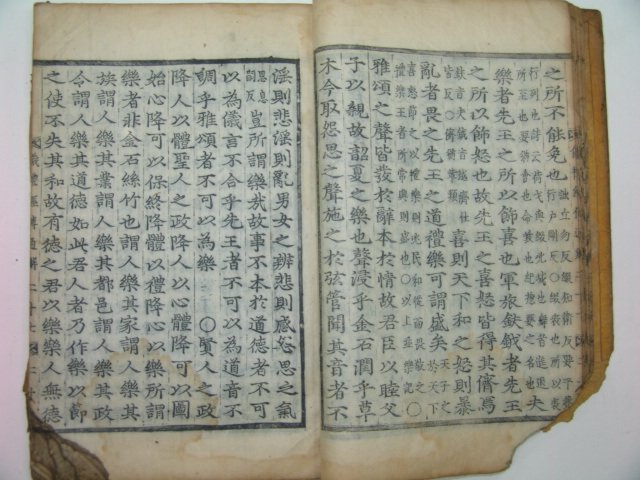 之所不能免也
行列也詩云荷戈與綴兆域也舞者進退
所至也要猶會也命教也紀總要之名也夫
樂者先王之所以飾喜也軍旅鈇鉞者先王
之所以飾怒也故先王之喜怒皆得其儕焉
喜則天下和之怒則暴
亂者畏之先王之道禮樂可謂盛矣
雅頌之聲皆發於辭本於情故君臣以睦父
子以親故韶夏之樂也聲浸乎金石潤乎草
木今取怨思之聲施之於弦管聞其音者不
淫則悲淫則亂男女之辨悲則感怨思之氣
豈所謂樂哉故事不本於道德者不可
以為儀言不合乎先王者不可以為道音不
調乎雅頌者不可以為樂 ○賢人之政
降人以體聖人之政降人以心體降可以圖
始心降可以保終降體以禮降心以樂所謂
樂者非金石絲竹也謂人樂其家謂人樂其
族謂人樂其業謂人樂其都邑謂人樂其政
令謂人樂其道德如此君人者乃作樂以節
之使不失其和故有德之君以樂樂人無德